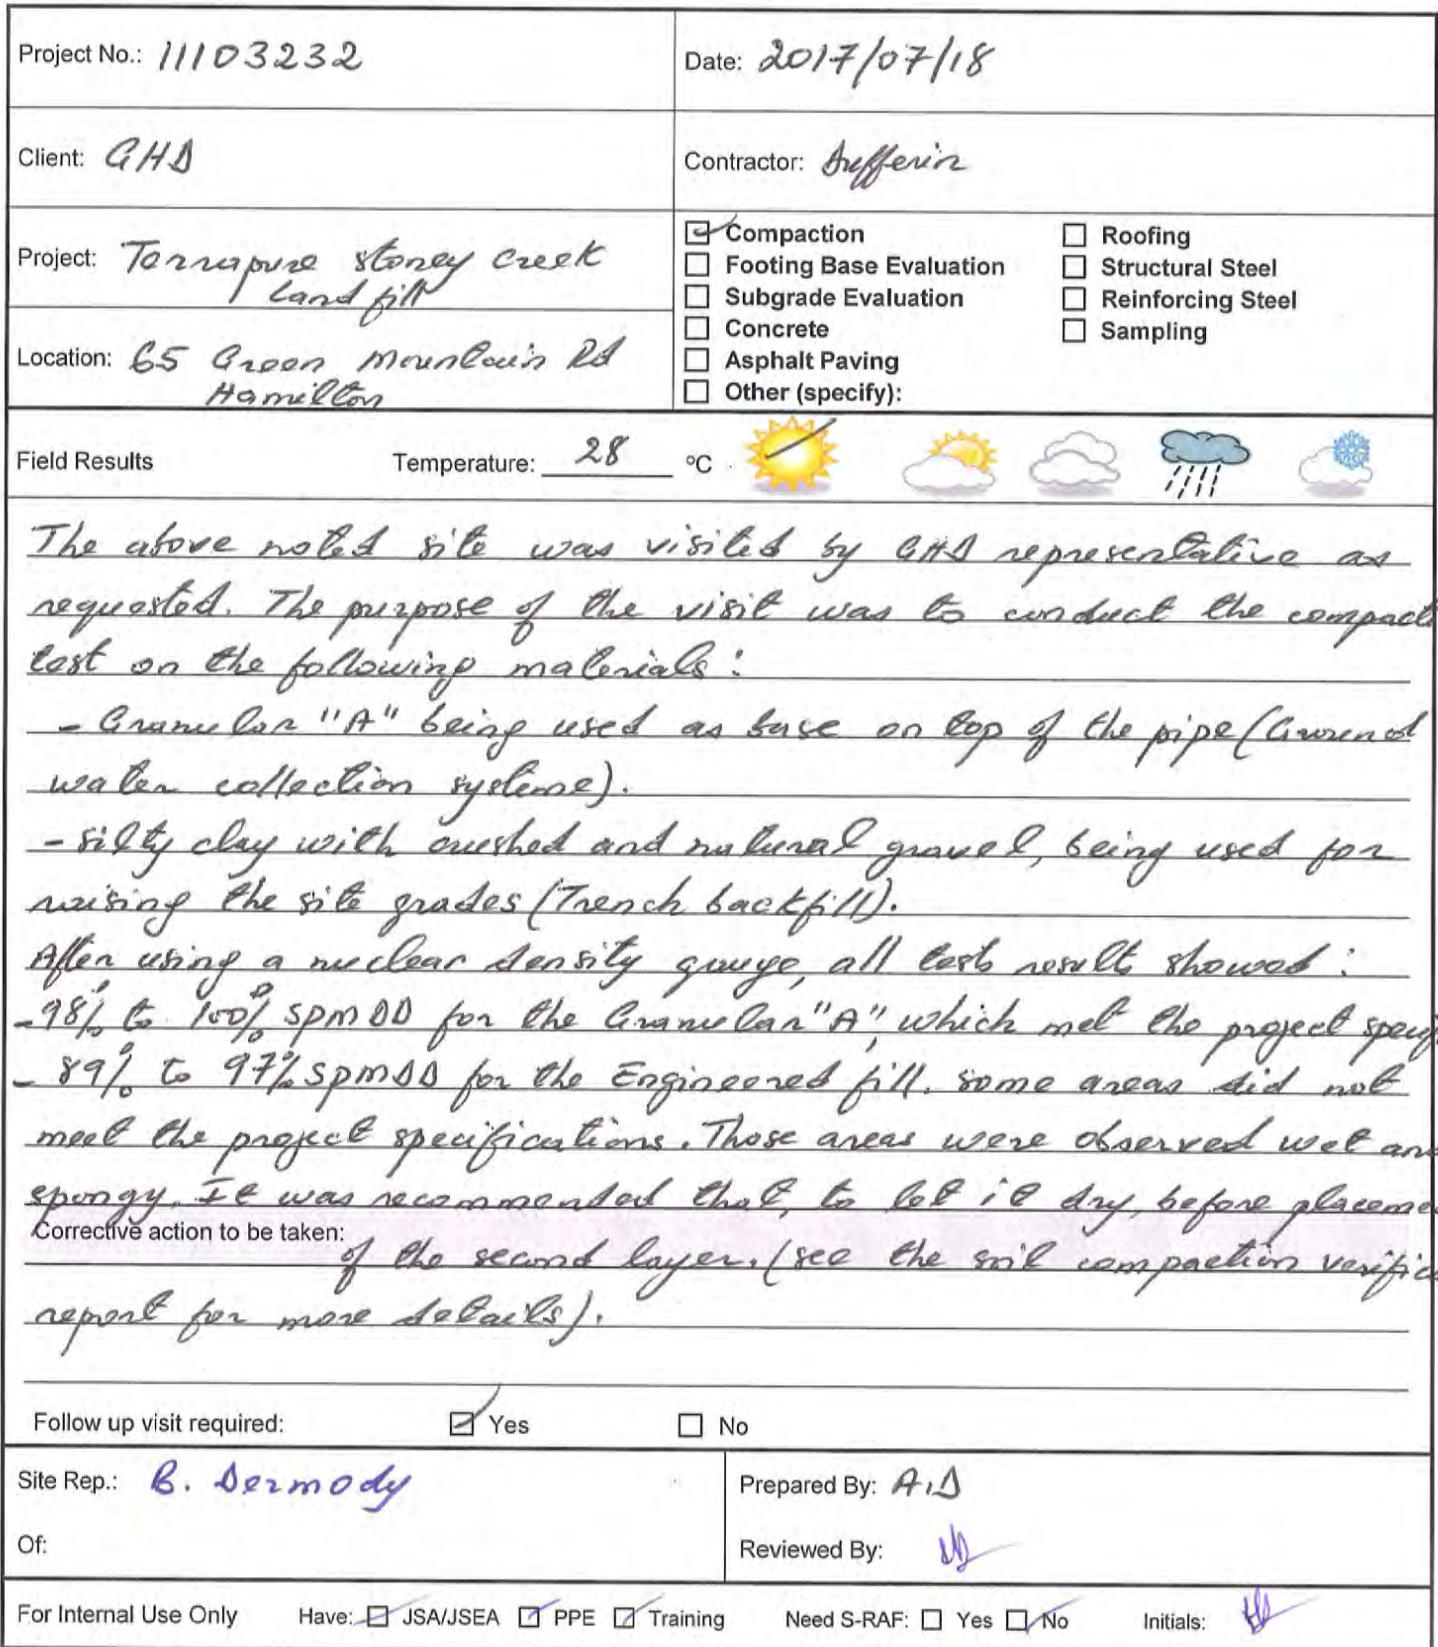 Project No.: 11103232
Date: 2017/07/18
Client: GHD
Contractor: Dufferin
Project: Terrapure stoney creek
Land fill
Location: 65 Green Mountain Rd
Hamilton
Compaction
Footing Base Evaluation
Subgrade Evaluation
Concrete
Asphalt Paving
Other (specify):
Roofing
Structural Steel
Reinforcing Steel
Sampling
Field Results Temperature: 28 °C
The above noted site was visited by GHD representative as
requested. The purpose of the visit was to conduct the compact
test on the following materials:
- Granular "A" being used as base on top of the pipe (Ground
water collection systeme).
- silty clay with crushed and natural gravel, being used for
raising the site grades (Trench backfill).
After using a nuclear density gauge, all tests result showed:
- 98% to 100% SPMDD for the Granular "A", which met the project specif
- 89% to 97% SPMDD for the Engineered fill. some areas did not
meet the project specifications. Those areas were observed wet and
spongy. It was recommended that, to let it dry, before placeme
Corrective action to be taken:
of the second layer. (see the soil compaction verific
report for more details).
Follow up visit required: Yes No
Site Rep.: B. Dermody
Prepared By: A.D
Of:
Reviewed By:
For Internal Use Only Have: JSA/JSEA PPE Training Need S-RAF: Yes No Initials: